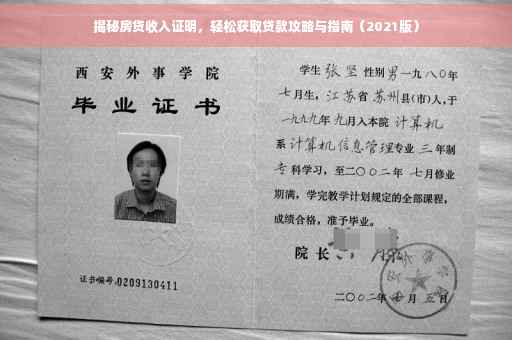 揭秘房贷收入证明，轻松获取贷款攻略与指南（2021版）
西安外事学院
毕业证书
证书编号:0209130411
学生 张坚 性别 男 一九八〇年
七月生，江苏省 苏州县(市)人，于
一九九九年 九月入本院 计算机
系 计算机信息管理 专业 三 年制
专科学习，至二〇〇二年 七月修业
期满，学完教学计划规定的全部课程，
成绩合格，准予毕业。
院长
二〇〇二年 月 五日